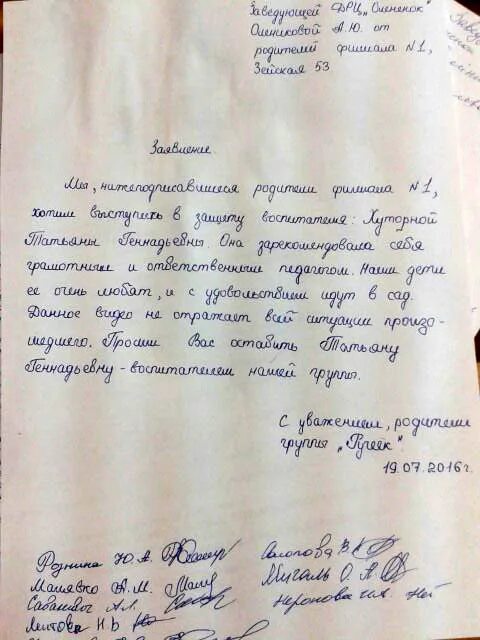 Заведующей ДРЦ „Олененок"
Олениковой А.Ю. от
родителей филиала №1,
Зейская 53
Заявление.
Мы, нижеподписавшиеся родители филиала №1,
хотим выступить в защиту воспитателя: Хуторной
Татьяны Геннадьевны. Она зарекомендовала себя
грамотным и ответственным педагогом. Наши дети
ее очень любят, и с удовольствием идут в сад.
Данное видео не отражает всей ситуации произо-
шедшего. Просим Вас оставить Татьяну
Геннадьевну - воспитателем нашей группы.
С уважением, родители
группы „Ручеек".
19.07.2016г.
Роднина Ю. А.
Малявко А. М.
А.Л.
Н. В
В.К
Мигаль О. А
Неронова